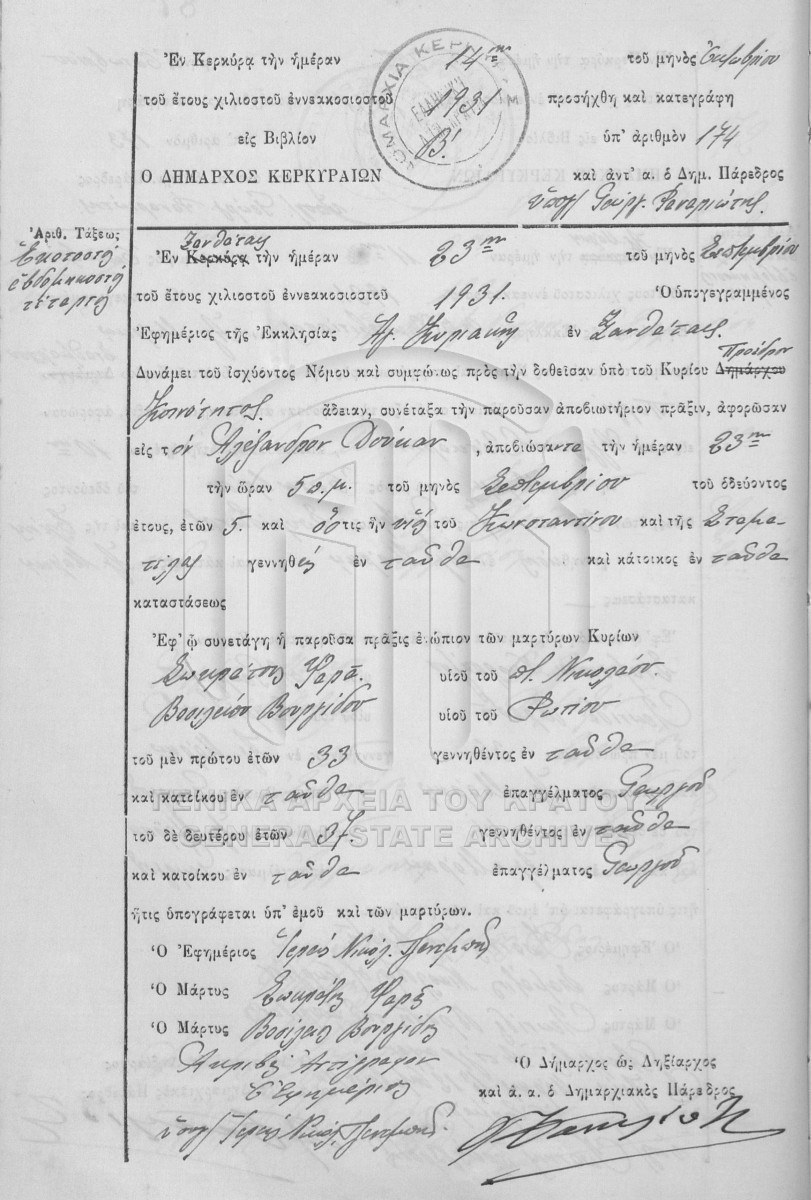 Ἐν Κερκύρᾳ τὴν ἡμέραν 14ην τοῦ μηνὸς Ὀκτωβρίου
τοῦ ἔτους χιλιοστοῦ ἐννεακοσιοστοῦ 1931 προσήχθη καὶ κατεγράφη
εἰς Βιβλίον Β! ὑπ' ἀριθμὸν 174
Ὁ ΔΗΜΑΡΧΟΣ ΚΕΡΚΥΡΑΙΩΝ καὶ ἀντ' α. ὁ Δημ. Πάρεδρος
Φαναριώτης
Ἀριθ. Τάξεως
Ἑκατοστὸ
ἑβδομηκοστὸ
τέταρτο
Ξανθάταις
Ἐν Κερκύρᾳ τὴν ἡμέραν 23ην τοῦ μηνὸς Σεπτεμβρίου
τοῦ ἔτους χιλιοστοῦ ἐννεακοσιοστοῦ 1931. Ὁ ὑπογεγραμμένος
Ἐφημέριος τῆς Ἐκκλησίας Ἁγ. Κυριακῆς ἐν Ξανθάταις.
Προέδρου
Δυνάμει τοῦ ἰσχύοντος Νόμου καὶ συμφώνως πρὸς τὴν δοθεῖσαν ὑπὸ τοῦ Κυρίου Δημάρχου
Κοινότητος. ἄδειαν, συνέταξα τὴν παροῦσαν ἀποβιωτήριον πρᾶξιν, ἀφορῶσαν
εἰς τὸν Ἀλέξανδρον Δούκαν, ἀποβιώσαντα τὴν ἡμέραν 23ην
τὴν ὥραν 5 π.μ. τοῦ μηνὸς Σεπτεμβρίου τοῦ ὁδεύοντος
ἔτους, ἐτῶν 5. καὶ ὅστις ἦν υἱὸς τοῦ Κωνσταντίνου καὶ τῆς Σταμα
τέλας γεννηθεὶς ἐν ταῦθα καὶ κάτοικος ἐν ταῦθα
καταστάσεως
Ἐφ' ᾧ συνετάγη ἡ παροῦσα πρᾶξις ἐνώπιον τῶν μαρτύρων Κυρίων
Σωκράτους Ψαρᾶ. υἱοῦ τοῦ π. Νικολάου.
Βασιλείου Βουργίδου υἱοῦ τοῦ Φωτίου
τοῦ μὲν πρώτου ἐτῶν 33 γεννηθέντος ἐν ταῦθα
καὶ κατοίκου ἐν ταῦθα ἐπαγγέλματος Γεωργοῦ
ΓΕΝΙΚΑ ΑΡΧΕΙΑ ΤΟΥ ΚΡΑΤΟΥΣ
τοῦ δὲ δευτέρου ἐτῶν 37. γεννηθέντος ἐν ταῦθα
GENERAL STATE ARCHIVES
καὶ κατοίκου ἐν ταῦθα ἐπαγγέλματος Γεωργοῦ
ἥτις ὑπογράφεται ὑπ' ἐμοῦ καὶ τῶν μαρτύρων.
Ὁ Ἐφημέριος Ἱερεὺς Νικόλ.
Ὁ Μάρτυς Σωκράτης Ψαρᾶς
Ὁ Μάρτυς Βασίλειος Βουργίδης
Ἀκριβὲς Ἀντίγραφον Ὁ Δήμαρχος ὡς Ληξίαρχος
Ὁ Ἐφημέριος καὶ ἀ. α. ὁ Δημαρχιακὸς Πάρεδρος
Ἱερεὺς Νικόλ.